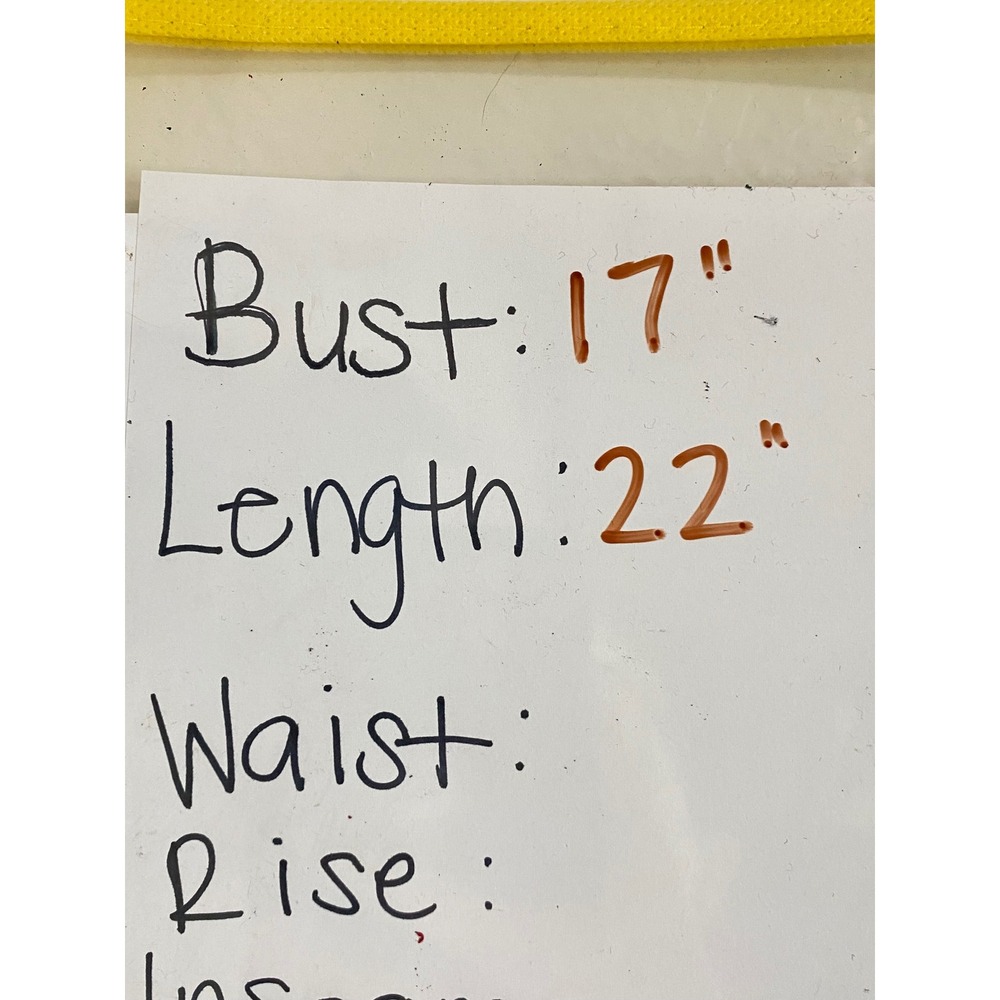 Bust: 17"
Length: 22"
Waist:
Rise: